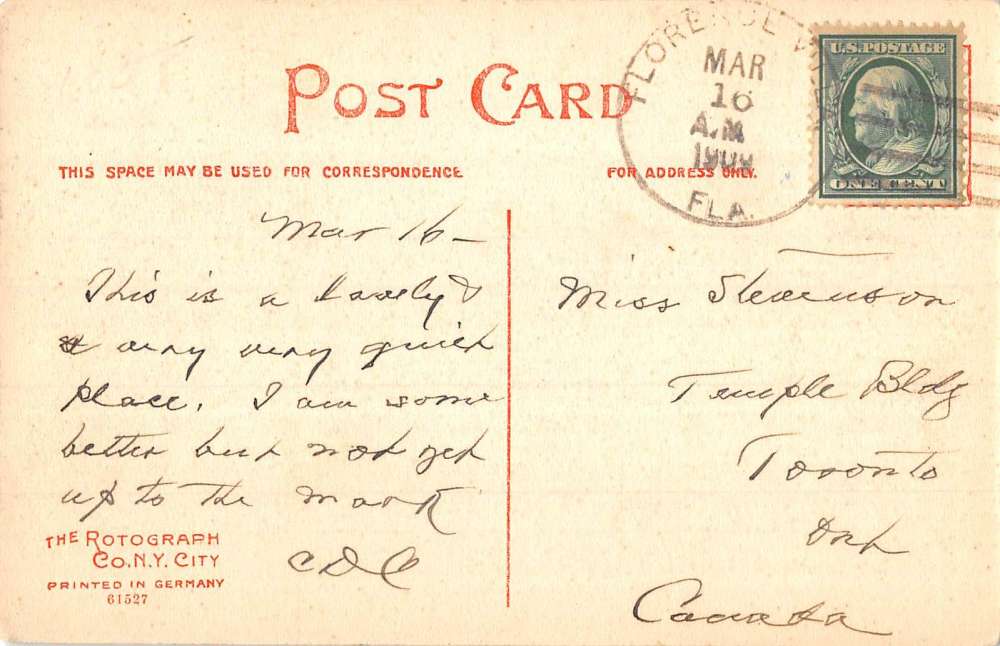 POST CARD
THIS SPACE MAY BE USED FOR CORRESPONDENCE
FOR ADDRESS ONLY.
FLORENCE
MAR
16
A.M
1909
FLA.
U.S. POSTAGE
ONE CENT
Mar 16 –
This is a lovely &
very very quiet
place. I am some
better but not yet
up to the mark
CDC
Miss Stevenson
Temple Bldg
Toronto
Ont
Canada
THE ROTOGRAPH
CO. N.Y. CITY
PRINTED IN GERMANY
61527